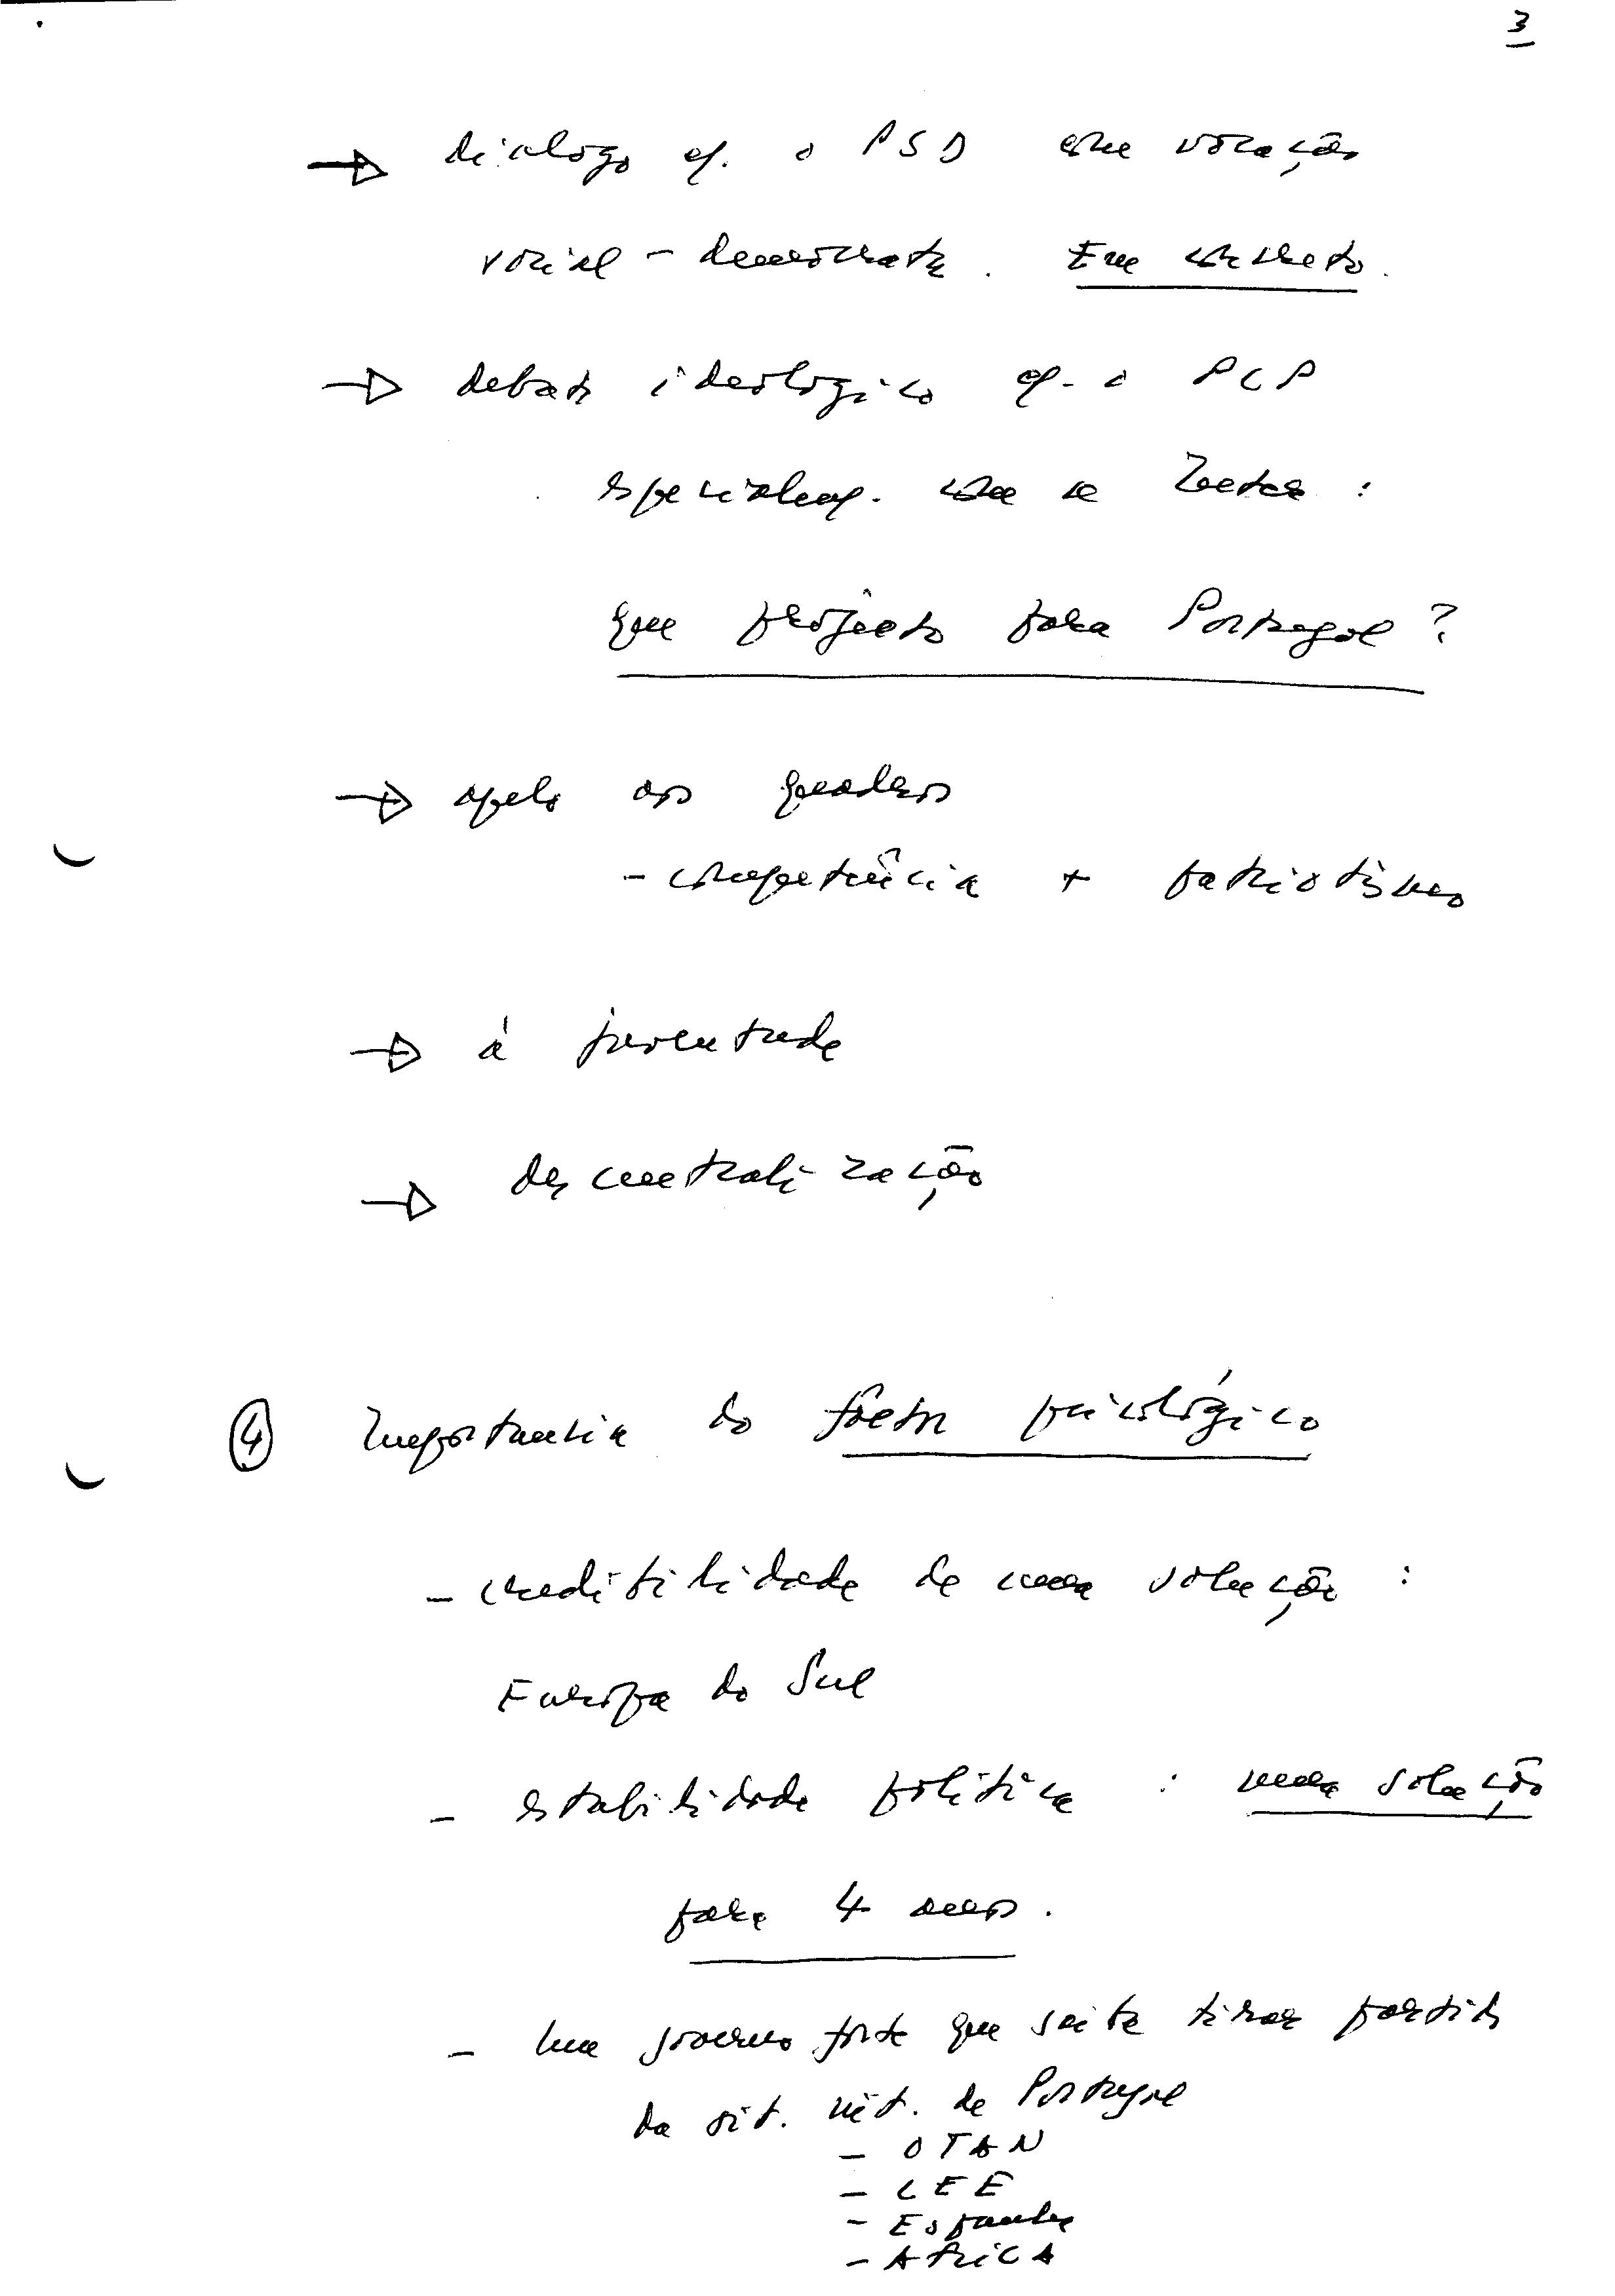 3
→ dialogo c/. o PSD com vocação
social-democrata. Em concreto.
→ debate ideologico c/. o PCP
especialm/.
que projecto para Portugal?
→ apelo aos quadros
- competência + patriotismo
→ á juventude
→ descentralização
④ Importancia do factor psicológico
- credibilidade de uma solução :
Europa do Sul
- estabilidade politica : uma solução
para 4 anos.
- Um governo forte que saiba tirar partido
da sit. int. de Portugal
- OTAN
- CEE
- Espanha
- AfricA